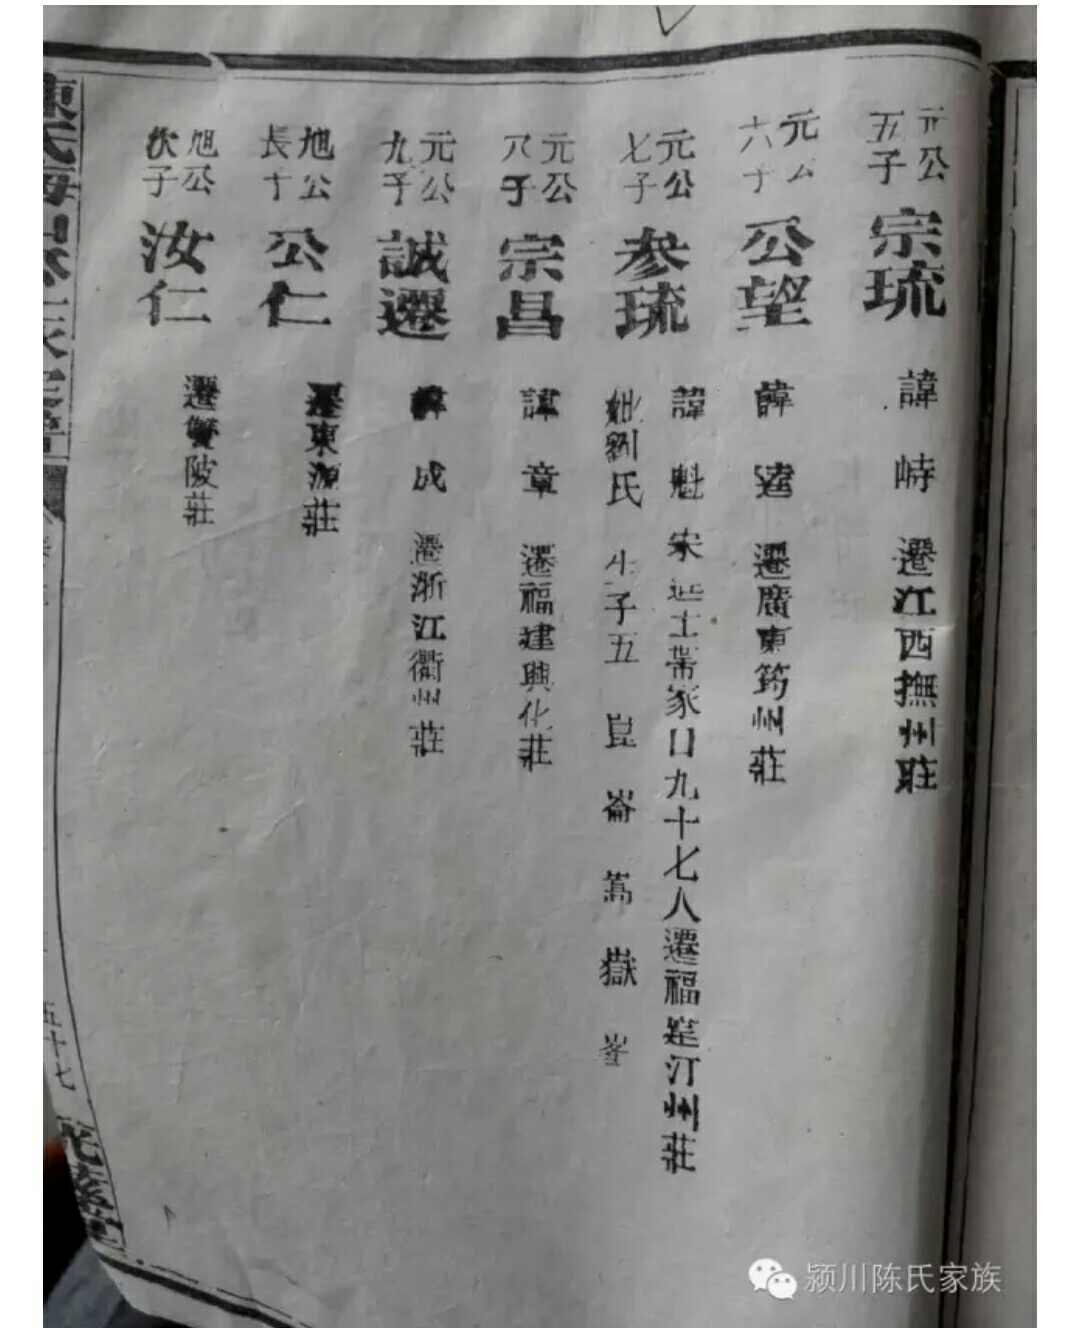 元公
五子
宗琉
諱峙遷江西撫州莊
元公
六子
公望
諱逵遷廣東筠州莊
元公
七子
參琉
諱魁宋進士帶家口九十七人遷福建汀州莊
妣劉氏生子五崑崙嵩嶽峯
元公
八子
宗昌
諱章遷福建興化莊
元公
九子
誠遷
諱成遷浙江衢州莊
旭公
長子
公仁
遷東源莊
旭公
次子
汝仁
遷陂莊
陳氏
五十七
颍川陈氏家族